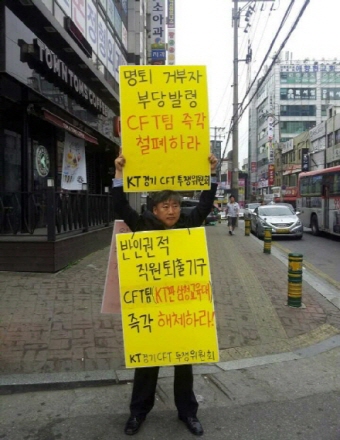 TOWNTOMS COFFEE
소아과
명퇴 거부자
부당발령
CFT팀 즉각
철폐하라
KT경기 CFT 투쟁위원회
반인권적
직원퇴출기구
CFT팀(KT판 삼청교육대)
즉각 해체하라!
KT경기 CFT 투쟁위원회